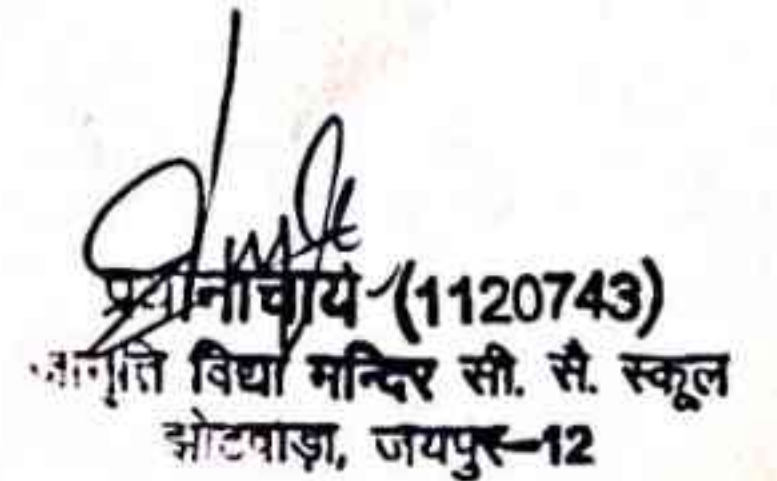 प्रधानाचार्य (1120743)
जागृति विद्या मन्दिर सी. सै. स्कूल
झोटवाड़ा, जयपुर-12